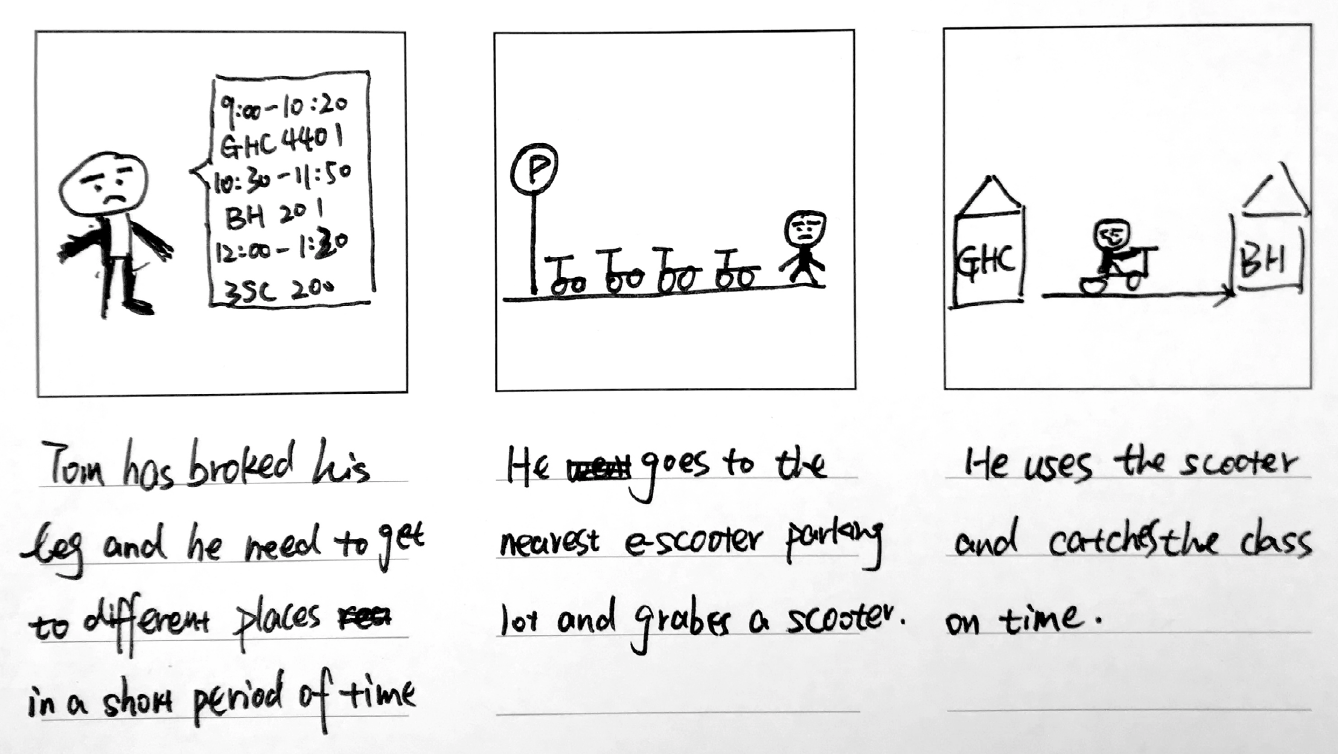 9:00-10:20
GHC 4401
10:30-11:50
BH 201
12:00-1:20
3SC 200
P
GHC
BH
Tom has broked his
leg and he need to get
to different places
in a short period of time
He goes to the
nearest e-scooter parking
lot and grabes a scooter.
He uses the scooter
and catches the class
on time.